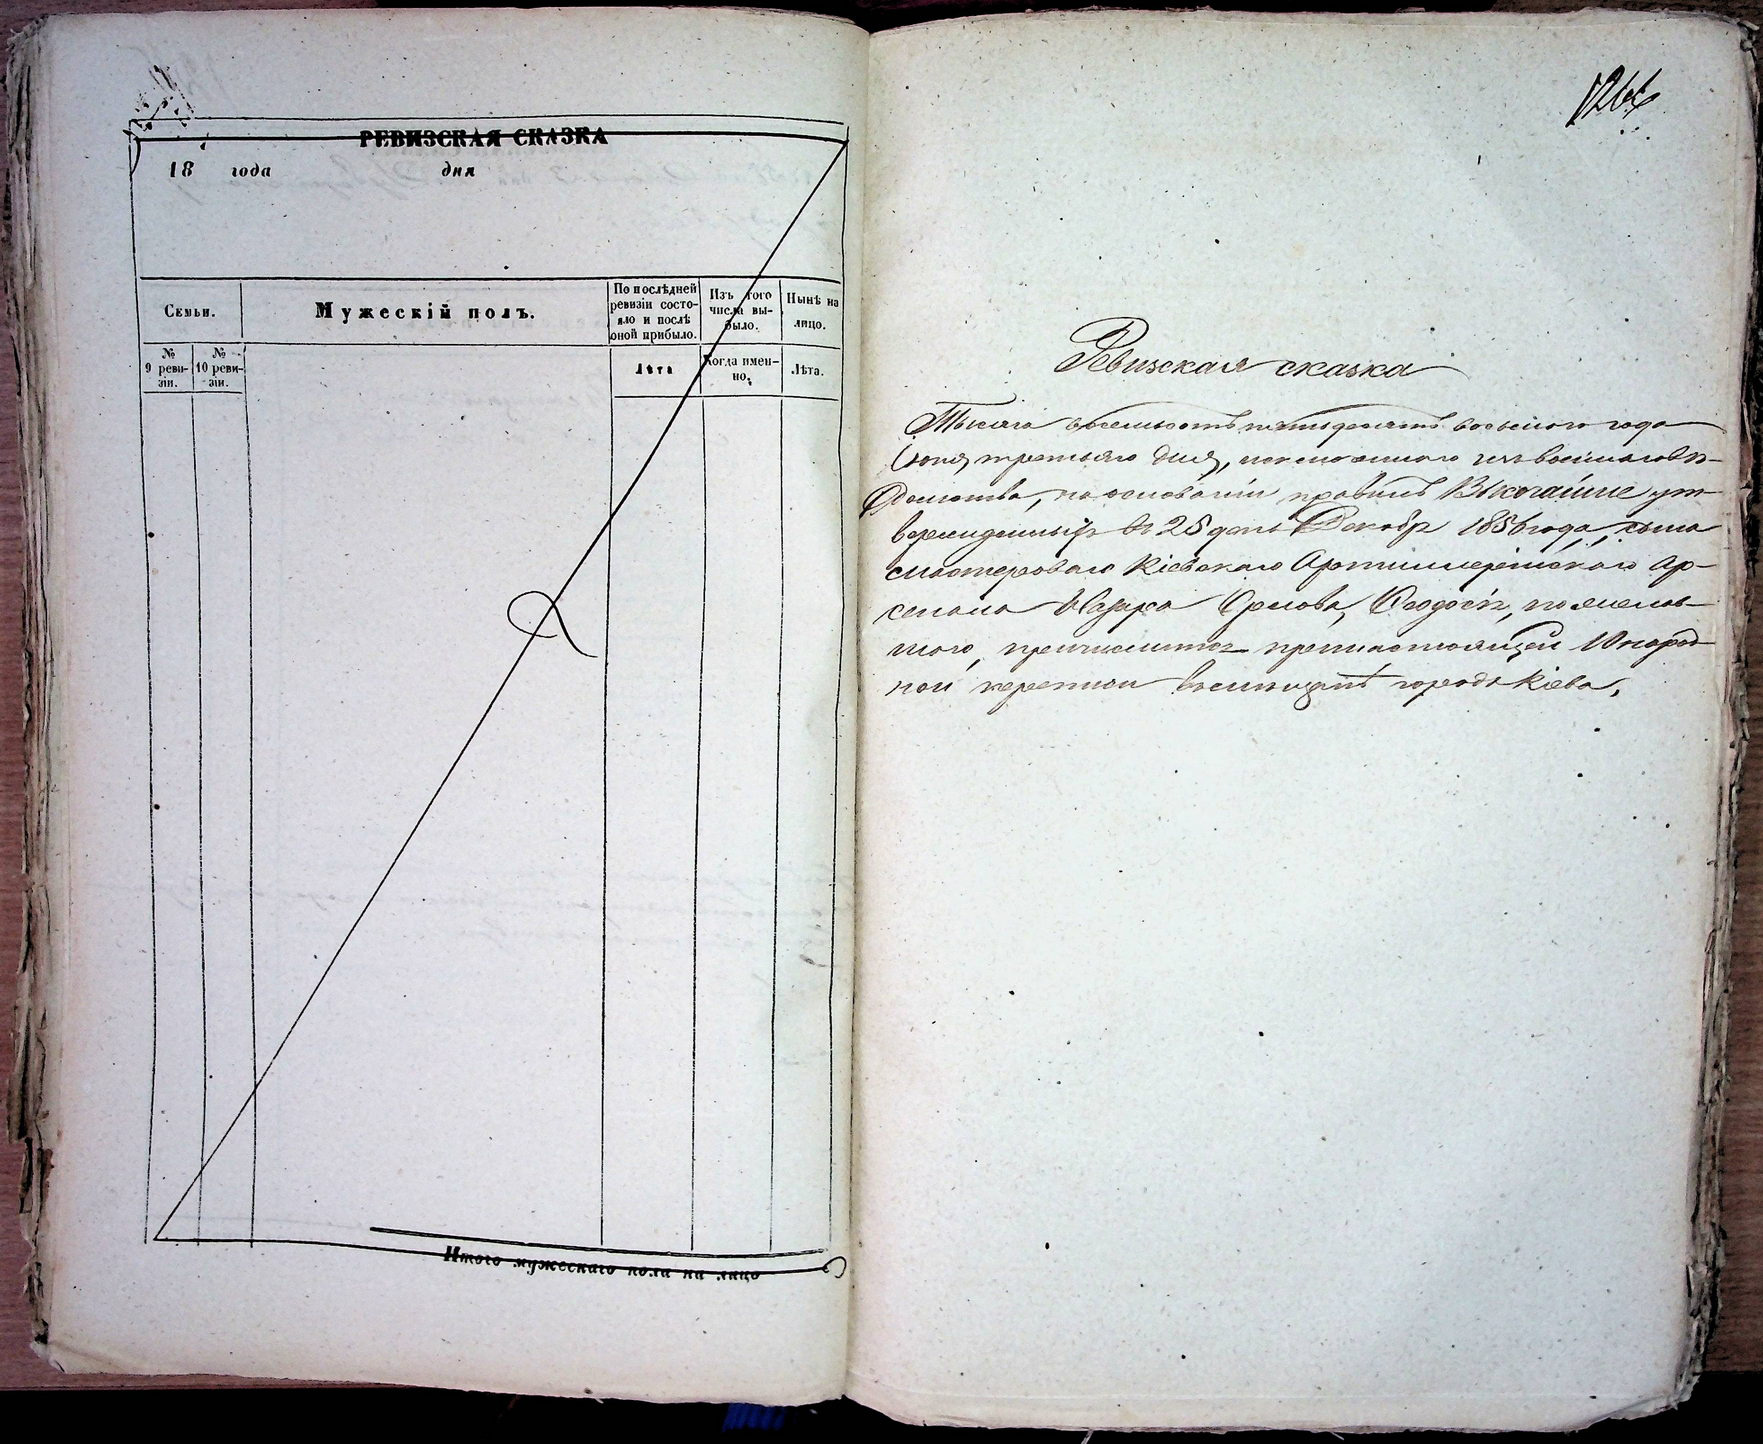 РЕВИЗСКАЯ СКАЗКА
18 года дня
Семьи.
Мужескій полъ.
По послѣдней
ревизіи состо-
яло и послѣ
оной прибыло.
Изъ того
числа вы-
было.
Нынѣ на
лицо.
№
9 реви-
зіи.
№
10 реви-
зіи.
Лѣта
Когда имен-
но.
Лѣта.
Итого мужескаго пола на лицо
Ревизская сказка
Тысяча восемьсотъ пятьдесятъ восьмого года
Іюня третьяго дня, изъ военнаго вѣ-
домства, на основаніи правилъ Высочайше ут-
вержденныхъ въ 25 день Декабр 1856 года, сына
мастероваго Кіевскаго Артиллерійскаго Ар-
сенала Назара Орлова, Ѳеодосія,
при настоящей 10 народ-
ной переписи въ мѣщане города Кіева,